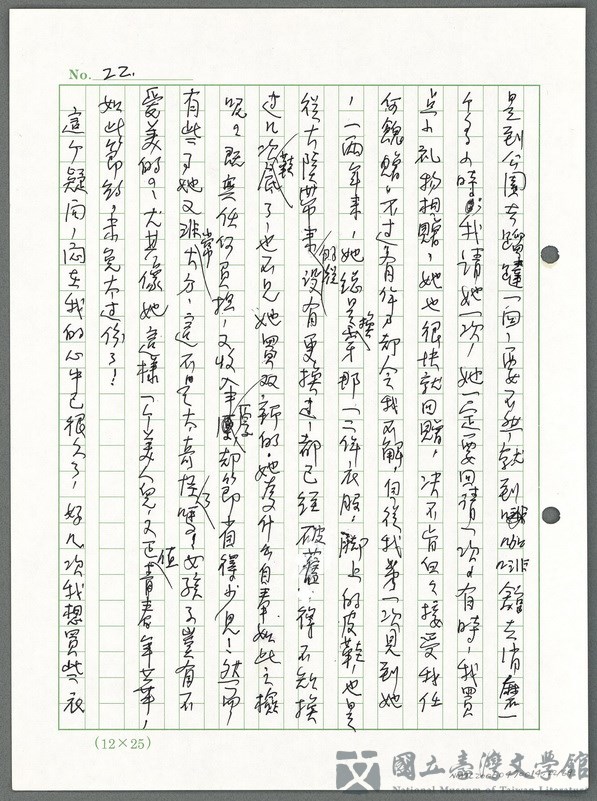 No. 22.
是到公園去蹓躂一回,要不然,就到咖啡館去消磨一
个多小時,我請她一次,她一定要回請一次,有時,我買
点小礼物相贈,她也很快就回贈,决不肯白白接受我任
何餽贈,不过有件事却令我不解,自從我第一次見到她
,一两年來,她總是穿換那一二件衣服,脚上的皮鞋,也是
從大陸帶來的,從沒有更換过,都已經破舊得不敢換
过几次鞋底了,也不見她買双新的,她為什么自奉如此之儉
呢?既無任何負担,又收入丰厚,却節省得少見!然而
有些事她又非常大方,這不是太奇怪了嗎?女孩子豈有不
愛美的?尤其像她這樣一个美人兒,又正值青春年华,
如此節約,未免太过份了!
這个疑问,闷在我的心中已很久了,好几次我想買些衣
(12×25)
國立臺灣文學館
National Museum of Taiwan Literature